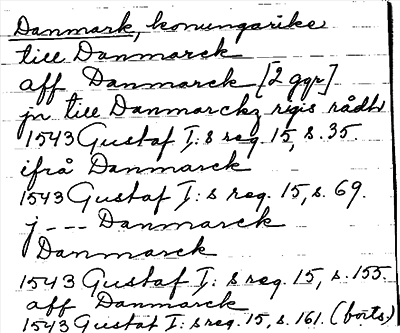 Danmark, konungarike
till Danmarck
aff Danmarck [2 ggr]
jn till Danmarckz rigis rådh
1543 Gustaf I:s reg. 15, s. 35.
ifrå Danmarck
1543 Gustaf I:s reg. 15, s. 69.
j --- Danmarck
Danmarck
1543 Gustaf I:s reg. 15, s. 155.
aff Danmarck
1543 Gustaf I:s reg. 15, s. 161. (forts.)